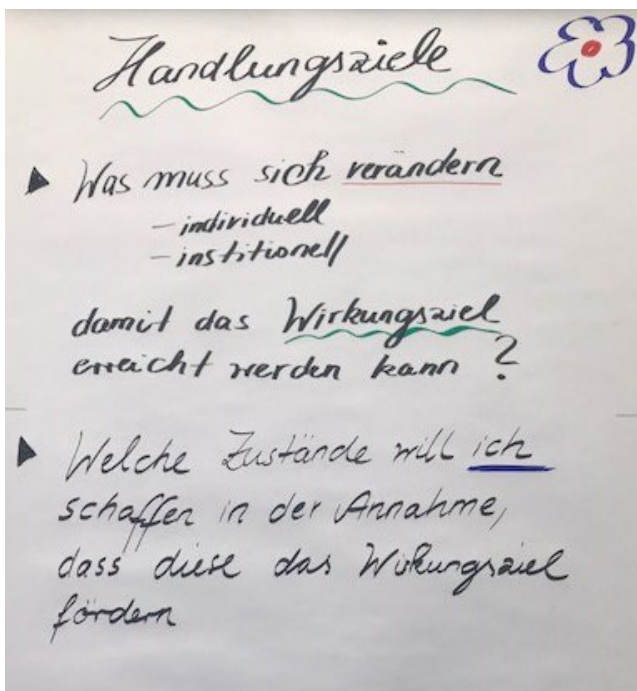 Handlungsziele
Was muss sich verändern
- individuell
- institionell
damit das Wirkungsziel
erreicht werden kann ?
Welche Zustände will ich
schaffen in der Annahme,
dass diese das Wirkungsziel
fördern